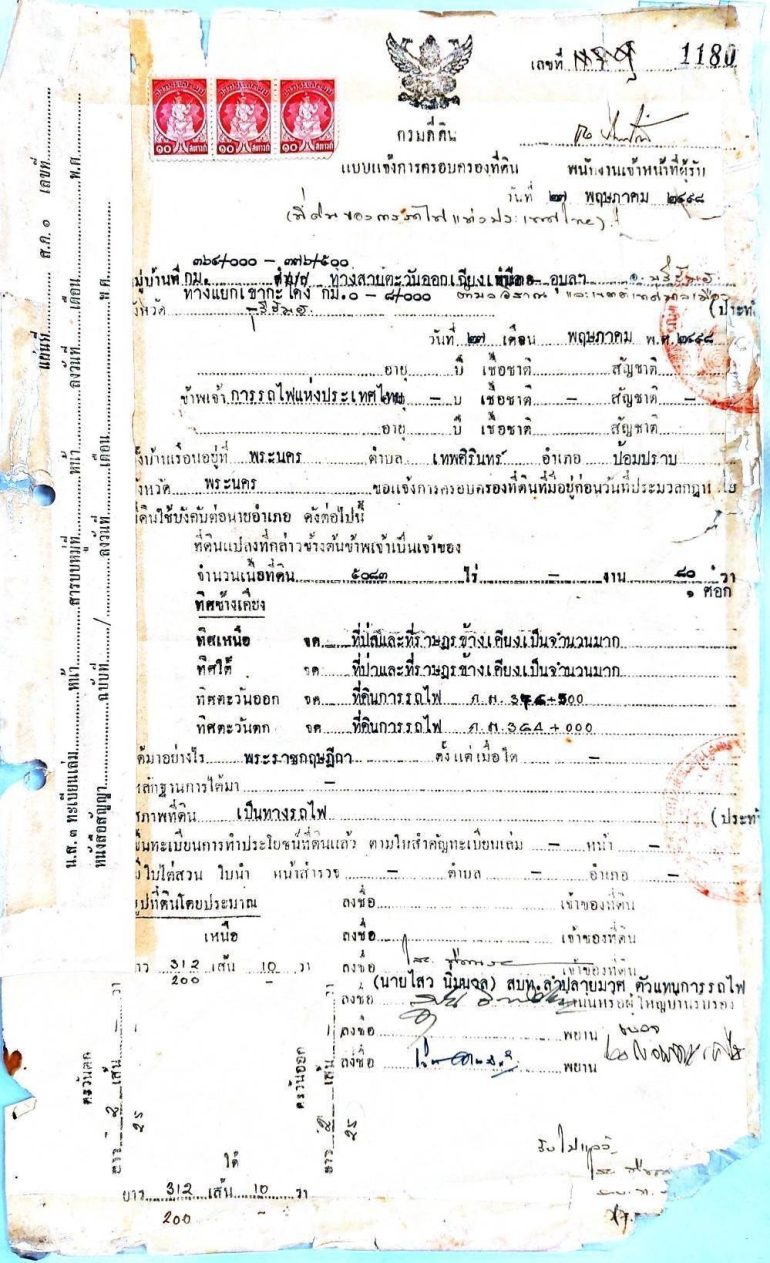 เลขที่ 1180
๑๐ สตางค์ ๑๐ สตางค์ ๑๐ สตางค์
กรมที่ดิน
แบบแจ้งการครอบครองที่ดิน พนักงานเจ้าหน้าที่ผู้รับ
วันที่ ๒๗ พฤษภาคม ๒๔๙๘
(ที่ดินของการรถไฟแห่งประเทศไทย)
๓๖๔/๐๐๐ - ๓๗๖/๕๐๐
หมู่บ้านที่ กม. ทางสายตะวันออกเฉียงเหนือ - อุบลฯ อ. บุรีรัมย์
ทางแยกเขากะโดง กม. ๐ - ๘/๐๐๐ ตำบลอิสาณ และเขตเทศบาลเมือง
จังหวัด บุรีรัมย์ (ประทั
วันที่ ๒๗ เดือน พฤษภาคม พ.ศ. ๒๔๙๘
อายุ ปี เชื้อชาติ สัญชาติ
ข้าพเจ้า การรถไฟแห่งประเทศไทย อายุ - ปี เชื้อชาติ - สัญชาติ -
อายุ ปี เชื้อชาติ สัญชาติ
ตั้งบ้านเรือนอยู่ที่ พระนคร ตำบล เทพศิรินทร์ อำเภอ ป้อมปราบ
จังหวัด พระนคร ขอแจ้งการครอบครองที่ดินที่มีอยู่ก่อนวันที่ประมวลกฎหมาย
ที่ดินใช้บังคับต่อนายอำเภอ ดังต่อไปนี้
ที่ดินแปลงที่กล่าวข้างต้นข้าพเจ้าเป็นเจ้าของ
จำนวนเนื้อที่ดิน ๕๐๘๓ ไร่ - งาน ๘๐ วา
๑ ศอก
ทิศข้างเคียง
ทิศเหนือ จด ที่ป่าและที่ราษฎรข้างเคียงเป็นจำนวนมาก
ทิศใต้ จด ที่ป่าและที่ราษฎรข้างเคียงเป็นจำนวนมาก
ทิศตะวันออก จด ที่ดินการรถไฟ ก.ม. 376+500
ทิศตะวันตก จด ที่ดินการรถไฟ ก.ม. 364+000
ได้มาอย่างไร พระราชกฤษฎีกา ตั้งแต่เมื่อใด -
หลักฐานการได้มา -
สภาพที่ดิน เป็นทางรถไฟ (ประทั
ขึ้นทะเบียนการทำประโยชน์ที่ดินแล้ว ตามใบสำคัญทะเบียนเล่ม - หน้า -
มีใบไต่สวน ใบนำ หน้าสำรวจ - ตำบล - อำเภอ -
รูปที่ดินโดยประมาณ ลงชื่อ เจ้าของที่ดิน
เหนือ ลงชื่อ เจ้าของที่ดิน
ยาว 312 เส้น 10 วา ลงชื่อ เจ้าของที่ดิน
200 -
(นายไสว นิ่มนวล) สบท.ลำปลายมาศ ตัวแทนการรถไฟ
ลงชื่อ กำนันหรือผู้ใหญ่บ้านรับรอง
ลงชื่อ พยาน
ลงชื่อ พยาน
ตะวันตก ยาว 2 เส้น - วา
25
ตะวันออก ยาว 2 เส้น - วา
25
ใต้
ยาว 312 เส้น 10 วา
200 -
รับไปแล้ว
น.ส. ๓ ทะเบียนเล่ม หน้า สารบบหมู่ที่ หน้า ลงวันที่ เดือน พ.ศ.
หนังสือสัญญา ฉบับที่ / ลงวันที่ เดือน พ.ศ.
แผ่นที่ ส.ค. ๑ เลขที่